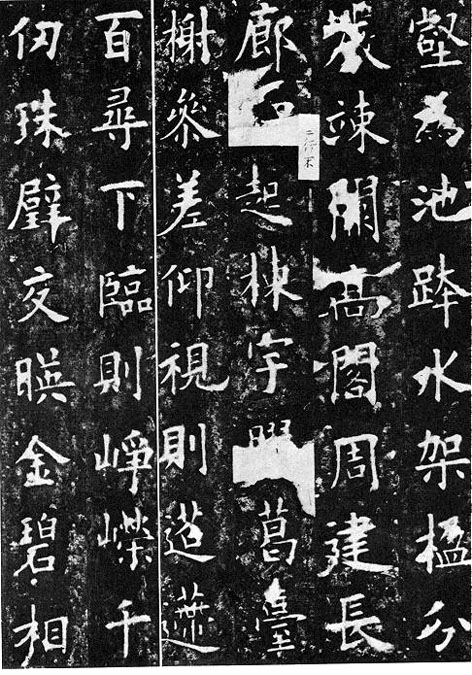 壑為池跨水架楹分
竦闕高閣周建長
廊起棟宇葛臺
榭參差仰視則迢遰
百尋下臨則崢嶸千
仞珠壁交暎金碧相